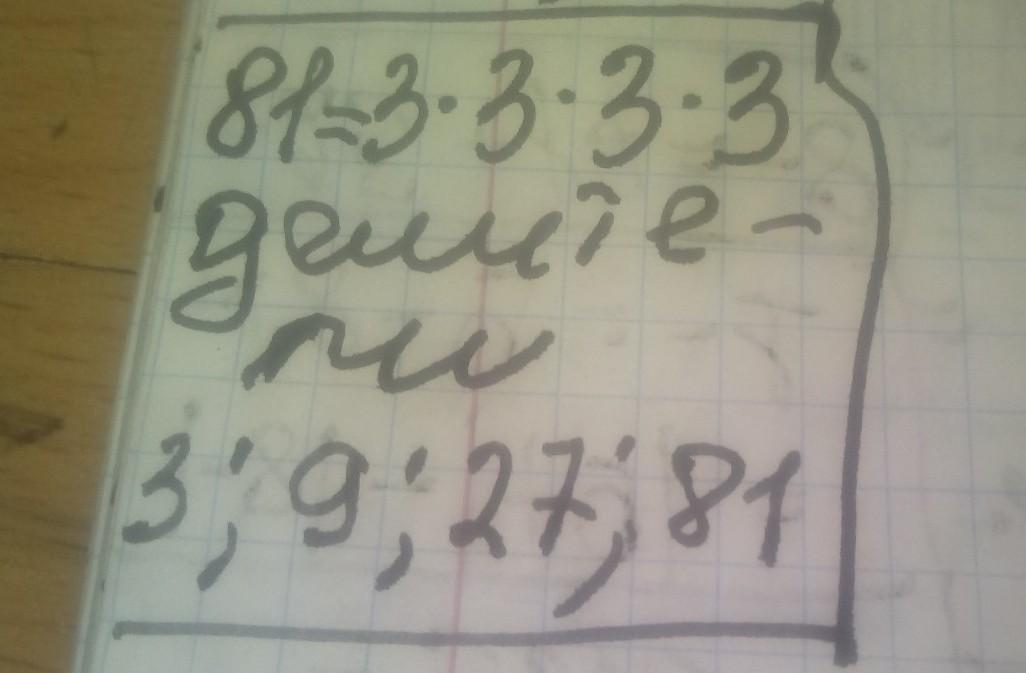 81=3·3·3·3
делите-
ли
3; 9; 27; 81